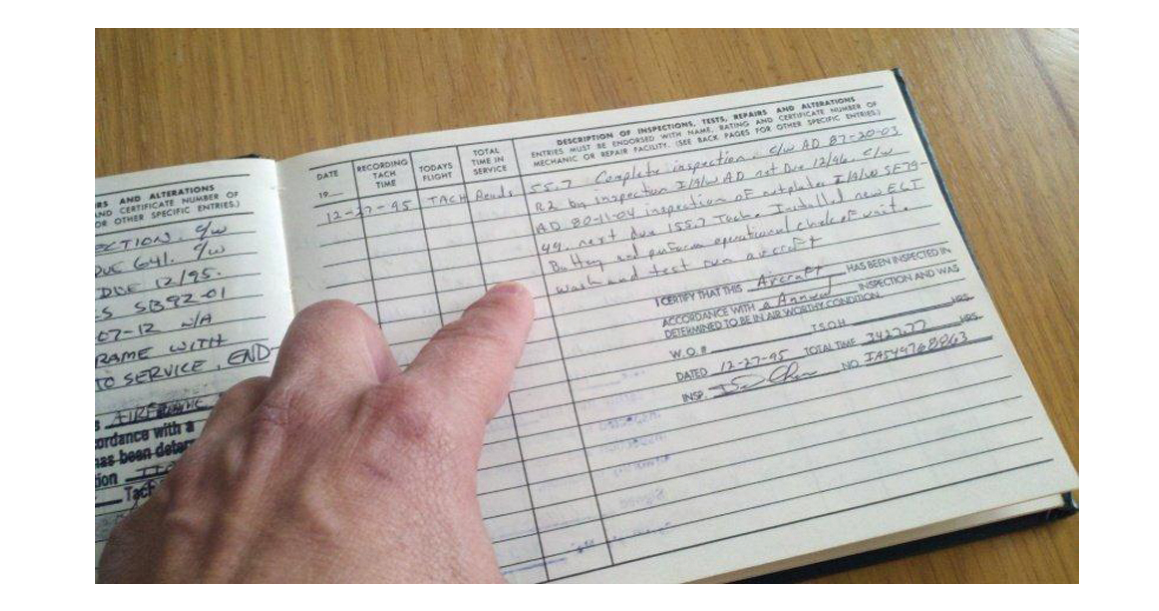 RS AND ALTERATIONS
AND CERTIFICATE NUMBER OF
OR OTHER SPECIFIC ENTRIES.)
ECTION. C/W
DUE 641. C/W
DUE 12/95.
S SB92-01
07-12 N/A
RAME WITH
TO SERVICE. END
AIRFRAME
ordance with a
as been deter
ion
Tach
DATE
19
RECORDING
TACH
TIME
TODAYS
FLIGHT
TOTAL
TIME IN
SERVICE
DESCRIPTION OF INSPECTIONS, TESTS, REPAIRS AND ALTERATIONS
ENTRIES MUST BE ENDORSED WITH NAME, RATING AND CERTIFICATE NUMBER OF
MECHANIC OR REPAIR FACILITY. (SEE BACK PAGES FOR OTHER SPECIFIC ENTRIES.)
12-27-95 TACH Reads 55.7 Complete inspection. C/W AD 87-20-03
R2 by inspection I/A/W AD Due 12/96. C/W
AD 80-11-04 inspection of nutplates I/A/W SE79-
49. next due 155.7 Tach. Installed new ELT
Battery and perform operational check of unit.
wash and test run aircraft
I CERTIFY THAT THIS Aircraft HAS BEEN INSPECTED IN
ACCORDANCE WITH a Annual INSPECTION AND WAS
DETERMINED TO BE IN AIR WORTHY CONDITION.
W.O.# T.S.O.H. HRS.
DATED 12-27-95 TOTAL TIME 3427.77 HRS.
INSP. NO. IA549768863